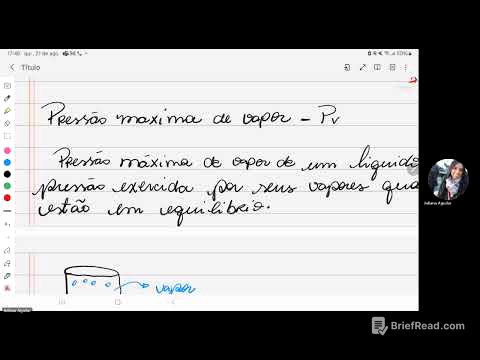 Título
Pressão maxima de vapor - Pv
Pressão máxima de vapor de um liquido
pressão exercida por seus vapores qua
estão em equilibrio.
vapor
Juliana Aguilar
BriefRead.com